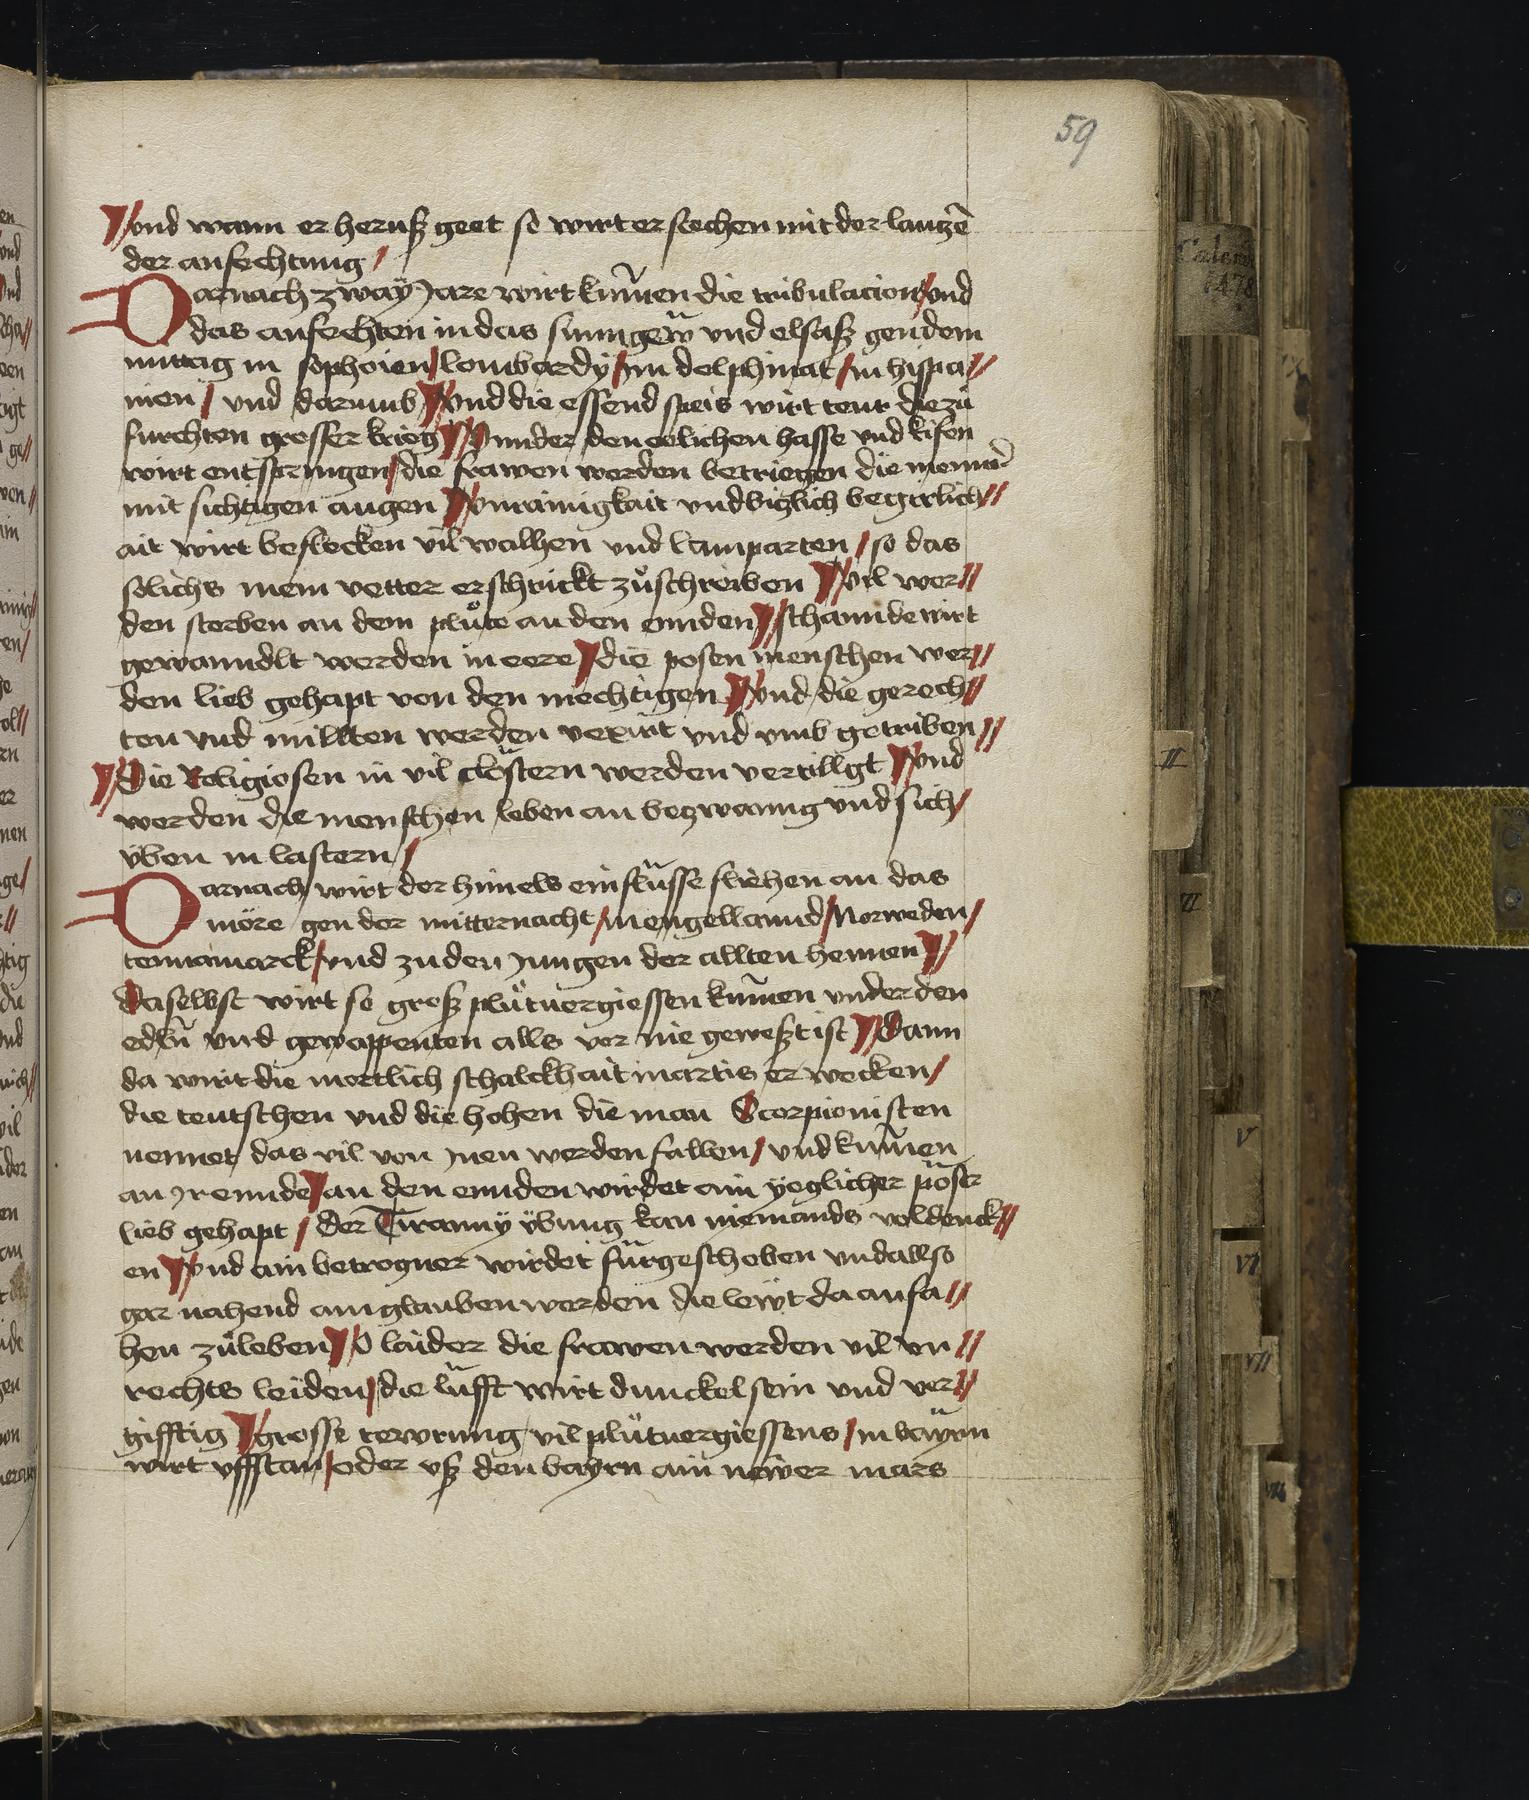 59
vnd wann er herusz geet so wirt er stechen mit der lanngē
der anfechtung /
Darnach zway jare wirt kum̄en die tribulacion / vnd
das anfechten in das sunngew vnd elsasz gen dem
mittag in sophoien / lombardy / im delphinat / in hispa//
nien / vnd darumb vnd die essend speis wirt teur die zů
furchten grosser krieg Vnnder den eelichen hasse vnd kifen
wirt entspringen / die frawen werden betriegen die menner
mit sichtigen augen Vnrainigkait vnd vizlich begirlich//
ait wirt beflecken vil walhen vnd lamparten / so das
solichs mein vetter erschrickt zůschreiben Vil wer//
den sterben an dem plůte an den ennden schannde wirt
gewanndlt werden in eere die posen menschen wer//
den lieb gehapt von den mechtigen vnd die gerech//
ten vnd millten werden vexirt vnd vmb getriben //
Die Religiosen in vil clöstern werden vertillgt Vnd
werden die menschen leben an bezwanng vnd sich /
yben in lastern /
Darnach wirt der himels einflüsse fliehen an das
möre gen der mitternacht / in engellannd / Norweden /
tennamarck / vnd zu den jungen der allten hennen //
Daselbst wirt so grosz plůtuergiessen kum̄en vnder den
edln̄ vnd gewappenten alls vor nie geweszt ist Dann
da wirt die mortlich schalckhait martis erwecken /
die teutschen vnd die hohen die man Scorpionisten
nennet das vil von jnen werden fallen / vnd kum̄en
an jr ennde an den ennden wirdet ain yeglicher pöser
lieb gehapt / der Tiranny ybung kan niemands voldenck//
en Vnd ain betrogner wirdet fürgeschoben vnd allso
gar nahend ain glauben werden die lewt da anfa//
hen zůleben O laider die frawen werden vil vn //
rechts leiden / die lüfft wirt dunckel sein vnd ver//
gifftig grosse tewrung vil plůtuergiessens / in bayrn
wirt vffstan / oder vsz den bayrn ain newer mars
Calend
1478
IX
II
III
V
VI
VII
VIII